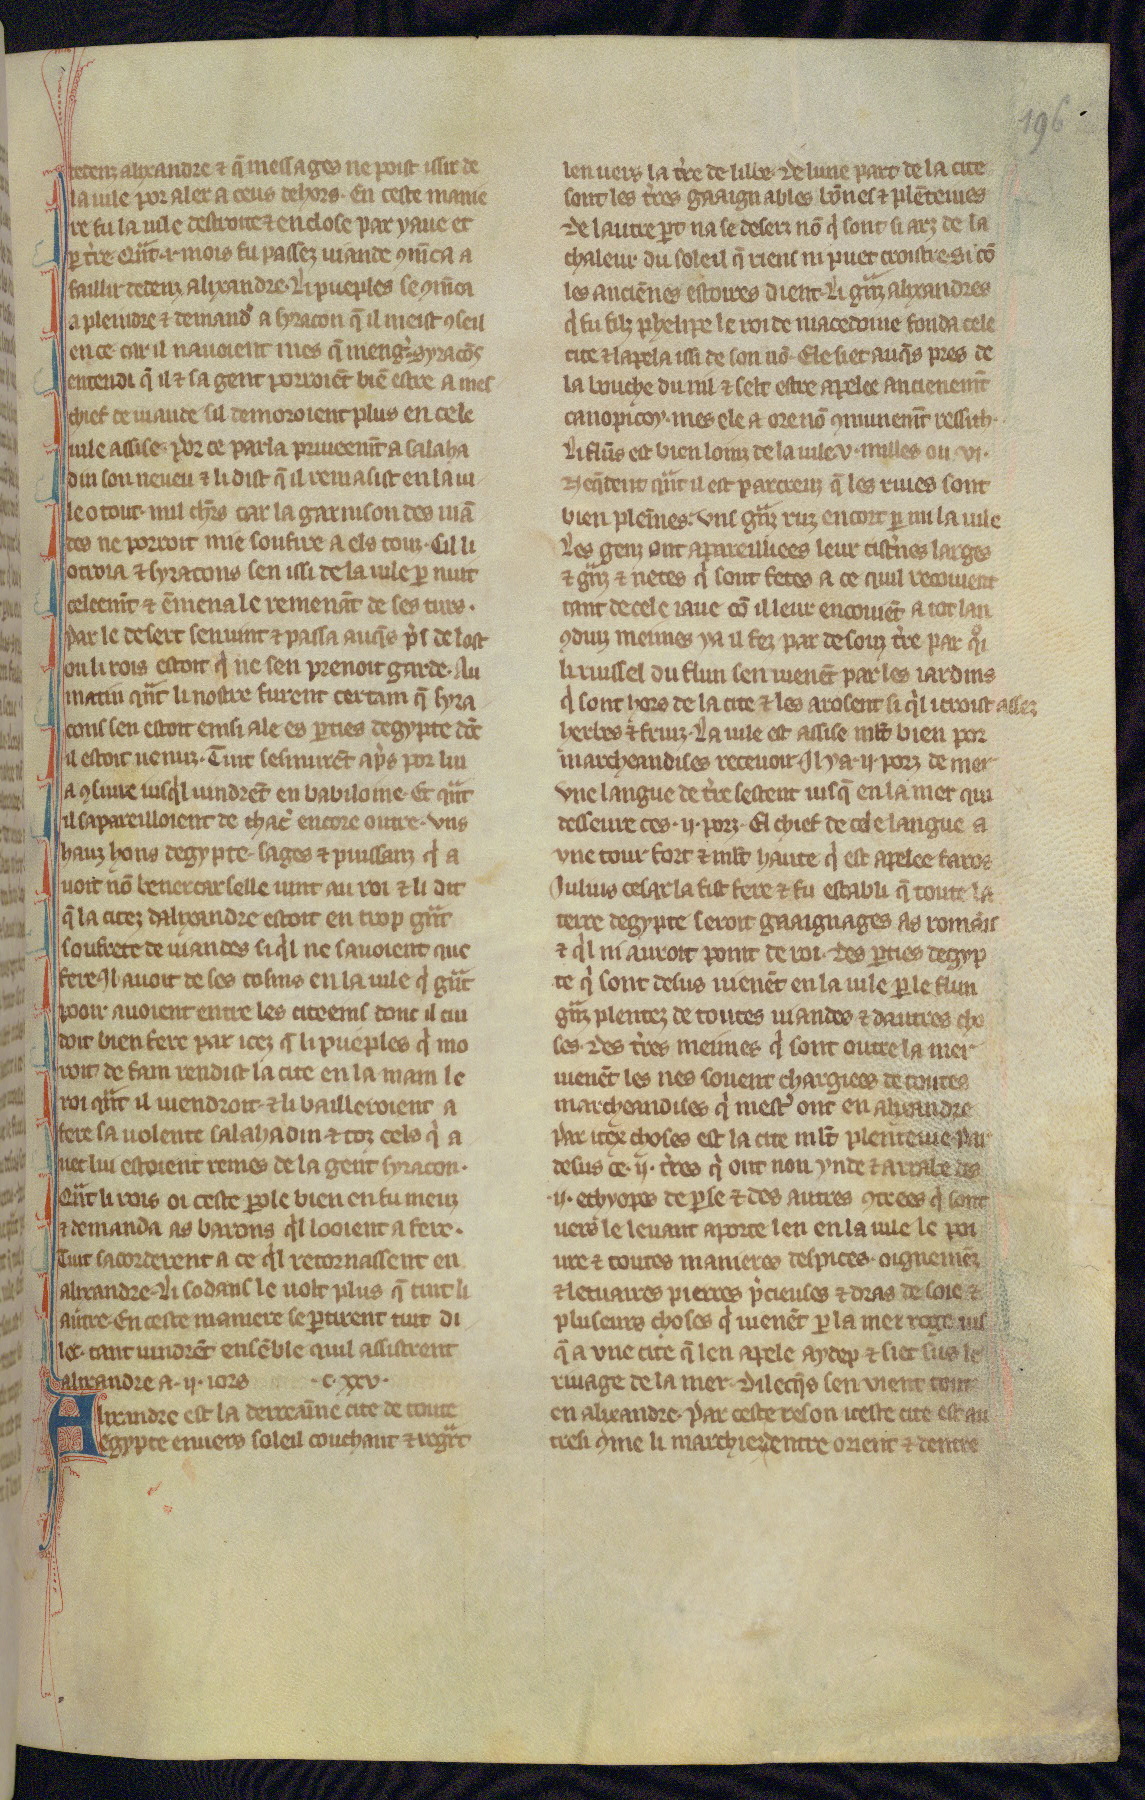 196
dedenz alixandre ⁊ q̃ messages ne poist issir de
la uile por aler a ceus dehors. En ceste manie
re fu la uile destroite ⁊ enclose par yaue et
ꝑ tr̃e. Qñt .i. mois fu passez uiande ꝯm̃ca a
faillir dedenz alixandre. Li pueples se ꝯm̃ca
a pleindre ⁊ demanda a syracon q̃ il meist ꝯseil
en ce car il nauoient mes q̃ mengr̃. Syracõs
entendi q̃ il ⁊ sa gent porroiẽt biẽ estre a mes
chief de uiande sil demoroient plus en cele
uile assise. Por ce parla priueem̃t a salaha
din son neueu ⁊ li dist q̃ il remasist en la ui
le o tout .mil chr̃s car la garnison des uiã
des ne porroit mie soufire a els touz. Cil li
otroia ⁊ syracons sen issi de la uile ꝑ nuit
celeem̃t ⁊ ẽmena le remenãt de ses turs.
Par le desert senuint ⁊ passa auq̃s p̃s de lost
ou li rois estoit q̃ ne sen prenoit garde. Au
matin qñt li nostre furent certain q̃ syra
cons sen estoit einsi ale es ꝑties degypte dõt
il estoit uenuz. Tuit sesmurẽt apr̃s por lui
a ꝯsiure iusq̃l uindrẽt en babiloine. Et qñt
il sapareilloient de chacr̃ encore outre. Uns
hauz hons degypte. sages ⁊ puissanz q̃ a
uoit nõ benercarselle uint au roi ⁊ li dit
q̃ la citez dalixandre estoit en trop gñt
soufrete de uiandes si q̃l ne sauoient que
fere. Il auoit de ses cosins en la uile q̃ gñt
pooir auoient entre les citeeins dont il cui
doit bien fere par icez q̃ li pueples q̃ mo
roit de fam rendist la cite en la main le
roi qñt il uiendroit. ⁊ li bailleroient a
fere sa uolente salahadin ⁊ toz cels q̃ a
uec lui estoient remes de la gent syracon.
Qñt li rois oi ceste ꝑole bien en fu meuz
⁊ demanda as barons q̃l looient a fere.
Tuit sacorderent a ce q̃l retornassent en
alixandre. Li sodans le uolt plus q̃ tuit li
aut̃re. En ceste maniere se ꝑtirent tuit di
lec. tant uindrẽt ensẽble quil assistrent
alixandre a .ij. iors .c. xxv.
Alixandre est la derreain̄e cite de toute
egypte enuers soleil couchant ⁊ regr̃t
len uers la tr̃e de libe. De lune part de la cite
sont les tr̃res gaaignables bõnes ⁊ plẽteiues
De lautre ꝑt na se deserz nõ q̃ sont si arz de la
chaleur du soleil q̃ riens ni puet croistre. Si cõ
les anciẽnes estoires dient. Li gñz alixandres
q̃ fu filz phelipe le roi de macedoine fonda cele
cite ⁊ lapela issi de son nõ. Ele siet auq̃s pres de
la bouche du nil ⁊ selt estre apelee ancienem̃t
canopicoy. mes ele a ore nõ ꝯmunem̃t ressith.
Li flũs est bien loinz de la uile .v. milles ou .vi.
Neq̃dent qñt il est parcreuz q̃ les riues sont
bien pleines. Uns gñz ruz encort ꝑ mi la uile
Les genz ont apareilliees leur cistr̃nes larges
⁊ gñz ⁊ netes q̃ sont fetes a ce quil recoiuent
tant de cele iaue cõ il leur encouiẽt a tot lan
ꝯduiz meimes ya il fez par desouz tr̃e par q̃i
li ruissel du flun sen uienẽt par les iardins
q̃ sont hors de la cite ⁊ les arosent si q̃l i croist assez
herbes ⁊ fruiz. La uile est assise ml̃t bien por
marcheandises receuoir. Il ya .ij. porz de mer
Une langue de tr̃e sestent iusq̃ en la mer qui
desseure ces .ij. porz. El chief de cele langue a
une tour fort ⁊ ml̃t haute q̃ est apelee faros
Iulius cesar la fist fere ⁊ fu establi q̃ toute la
terre degypte seroit gaaignages as romais
⁊ q̃l ni auroit point de roi. Des ꝑties degyp
te q̃ sont desus uienẽt en la uile ꝑ le flun
gñz plentez de toutes uiandes ⁊ dautres cho
ses. Des tr̃res meimes q̃ sont outre la mer
uienẽt les nes souent chargiees de toutes
marcheandises q̃ mestr̃ ont en alixandre
Par itex choses est la cite ml̃t plenteiue par
desus ce .ij. tr̃res q̃ ont non ynde ⁊ arrabe des
.ij. ethyopes de perse ⁊ des autres ꝯtrees q̃ sont
uers le leuant aporte len en la uile le poi
ure ⁊ toutes manieres despices. oignemẽz
⁊ letuaires pierres p̃cieuses ⁊ dras de soie ⁊
pluseurs choses q̃ uienẽt ꝑ la mer roge ius
q̃ a une cite q̃ len apele aydep ⁊ siet sus le
riuage de la mer. Dilecq̃s sen uient tout
en alixandre. Par ceste reson iceste cite est au
tresi ꝯme li marchiez dentre orient ⁊ dentre